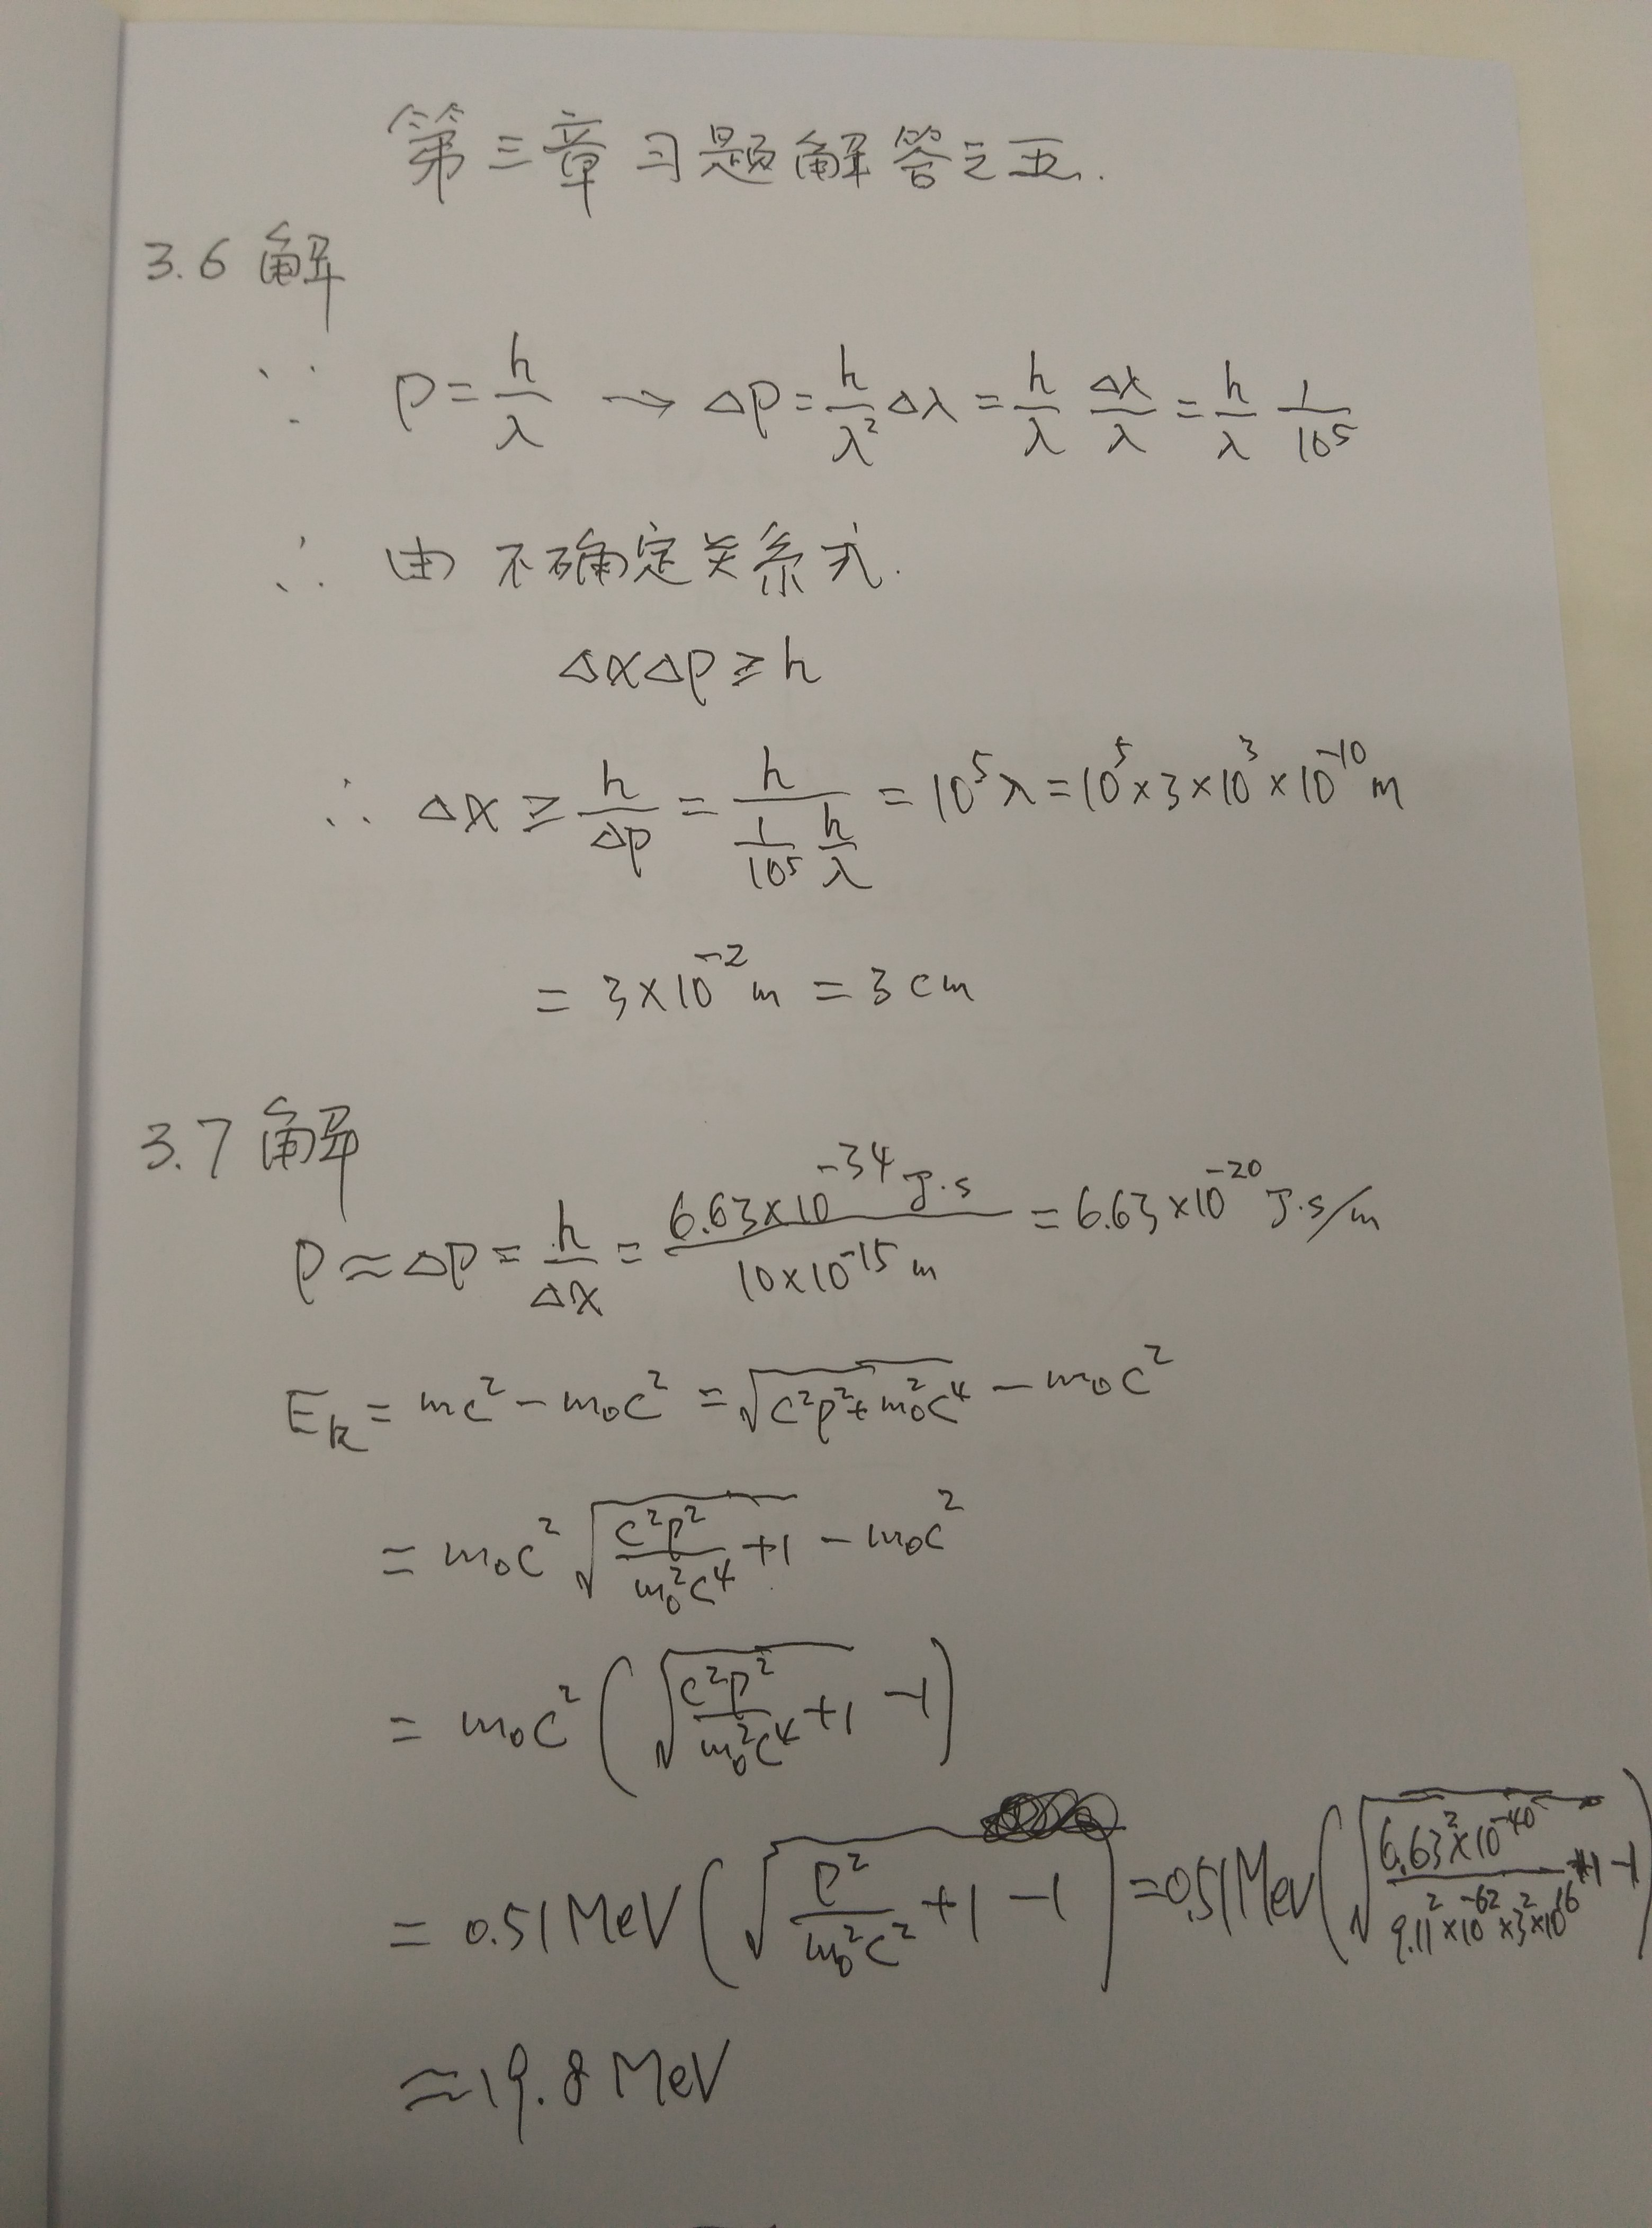 第三章习题解答之五.
3.6 解
∵ P = h/λ → ΔP = h/λ² Δλ = h/λ Δλ/λ = h/λ 1/10⁵
∴ 由不确定关系式.
ΔxΔP ≥ h
∴ Δx ≥ h/ΔP = h/(1/10⁵ h/λ) = 10⁵λ = 10⁵×3×10³×10⁻¹⁰ m
= 3×10⁻² m = 3 cm
3.7 解
P ≈ ΔP = h/Δx = 6.63×10⁻³⁴ J·s / 10×10⁻¹⁵ m = 6.63×10⁻²⁰ J·s/m
E_k = mc² − m₀c² = √(c²p²+m₀²c⁴) − m₀c²
= m₀c² √(c²p²/m₀²c⁴ +1) − m₀c²
= m₀c² (√(c²p²/m₀²c⁴ +1) −1)
= 0.51 MeV (√(p²/m₀²c² +1) −1) = 0.51 MeV (√(6.63²×10⁻⁴⁰/9.11²×10⁻⁶²×3²×10¹⁶ +1) −1)
≈ 19.8 MeV